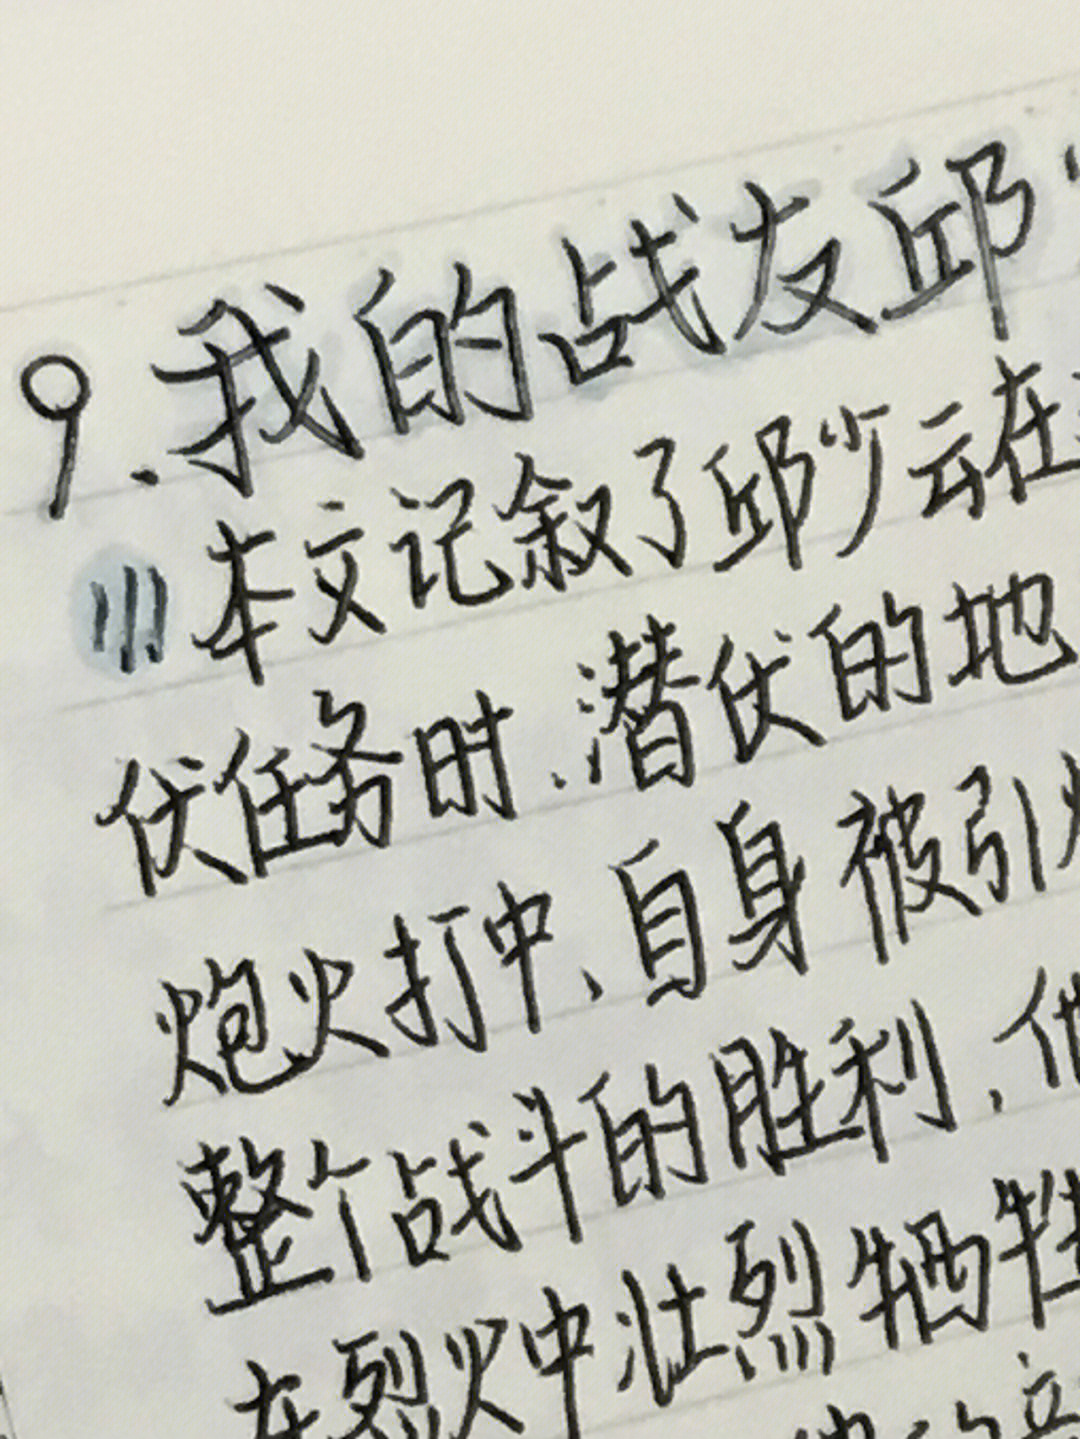 9.我的战友邱
本文记叙了邱少云在
伏任务时,潜伏的地
炮火打中、自身被引
整个战斗的胜利,他
在烈火中壮烈牺牲